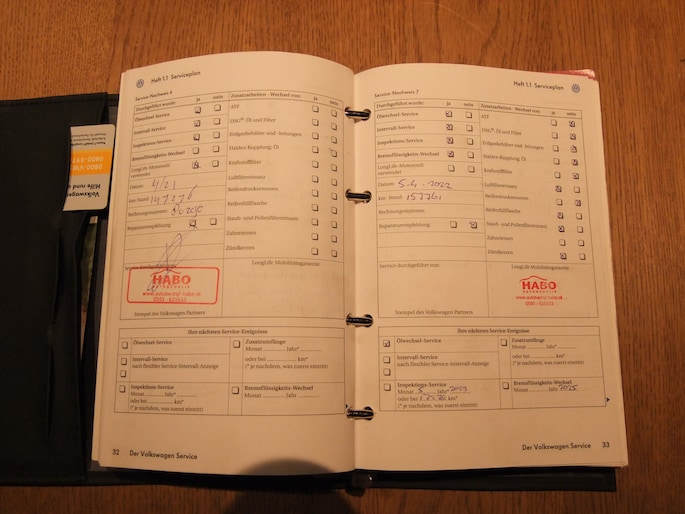 Heft 1.1 Serviceplan
Service-Nachweis 6
Durchgeführt wurde: ja nein
Ölwechsel-Service
Intervall-Service
Inspektions-Service
Bremsflüssigkeits-Wechsel
LongLife-Motorenöl verwendet
Datum: 4/21
km-Stand:
Rechnungsnummer:
Reparaturempfehlung
Service durchgeführt von:
HABO
AUTOSERVICE
Stempel des Volkswagen Partners
Zusatzarbeiten - Wechsel von: ja nein
ATF
DSG®-Öl und Filter
Erdgasbehälter und -leitungen
Haldex-Kupplung: Öl
Kraftstofffilter
Luftfiltereinsatz
Reifendrucksensoren
Reifenfüllflasche
Staub- und Pollenfiltereinsatz
Zahnriemen
Zündkerzen
LongLife Mobilitätsgarantie
Ihre nächsten Service-Ereignisse
Ölwechsel-Service
Intervall-Service
nach flexibler Service-Intervall-Anzeige
Inspektions-Service
Monat ........ Jahr* ........
oder bei ........ km*
(* je nachdem, was zuerst eintritt)
Zusatzumfänge
Monat ........ Jahr* ........
oder bei ........ km*
(* je nachdem, was zuerst eintritt)
Bremsflüssigkeits-Wechsel
Monat ........ Jahr ........
32 Der Volkswagen Service
Heft 1.1 Serviceplan
Service-Nachweis 7
Durchgeführt wurde: ja nein
Ölwechsel-Service
Intervall-Service
Inspektions-Service
Bremsflüssigkeits-Wechsel
LongLife-Motorenöl verwendet
Datum: 5.4.2022
km-Stand:
Rechnungsnummer:
Reparaturempfehlung
Service durchgeführt von:
Stempel des Volkswagen Partners
Zusatzarbeiten - Wechsel von: ja nein
ATF
DSG®-Öl und Filter
Erdgasbehälter und -leitungen
Haldex-Kupplung: Öl
Kraftstofffilter
Luftfiltereinsatz
Reifendrucksensoren
Reifenfüllflasche
Staub- und Pollenfiltereinsatz
Zahnriemen
Zündkerzen
LongLife Mobilitätsgarantie
HABO
AUTOSERVICE
Ihre nächsten Service-Ereignisse
Ölwechsel-Service
Intervall-Service
nach flexibler Service-Intervall-Anzeige
Inspektions-Service
Monat 5 Jahr* 2023
oder bei km*
(* je nachdem, was zuerst eintritt)
Zusatzumfänge
Monat ........ Jahr* ........
oder bei ........ km*
(* je nachdem, was zuerst eintritt)
Bremsflüssigkeits-Wechsel
Monat ........ Jahr 2025
Der Volkswagen Service 33